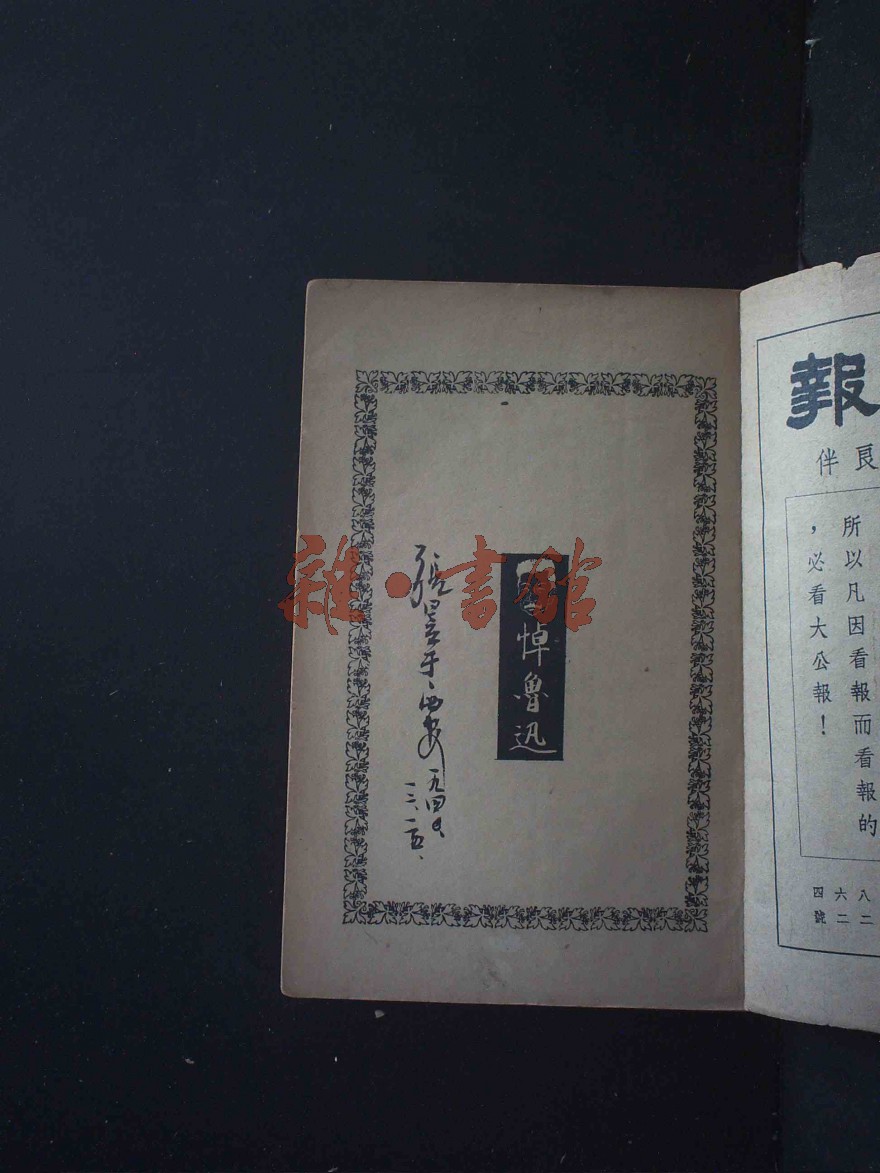 報
良伴
所以凡因看報而看報的
，必看大公報！
八二
六二
四號
悼魯迅
張
西安
一九四
一二、一五、
雜·書館